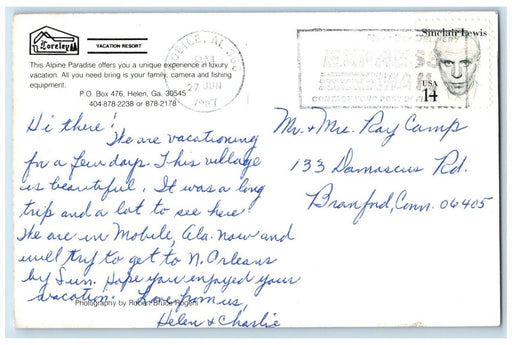 Loreley
VACATION RESORT
This Alpine Paradise offers you a unique experience in luxury
vacation. All you need bring is your family, camera and fishing
equipment.
P.O. Box 476, Helen, Ga. 30545
404-878-2238 or 878-2178
MOBILE, AL
PM
27 JUN
1987
EXPRESS
MAIL
Sinclair Lewis
USA
14
Hi there!
We are vacationing
for a few days. This village
is beautiful. It was a long
trip and a lot to see here.
We are in Mobile, Ala. now and
will try to get to N. Orleans
by Sun. Hope you enjoyed your
vacation. Love from us,
Photography by Robert Bruce Rogers
Helen & Charlie
Mr. & Mrs. Ray Camp
133 Damascus Rd.
Branford, Conn. 06405